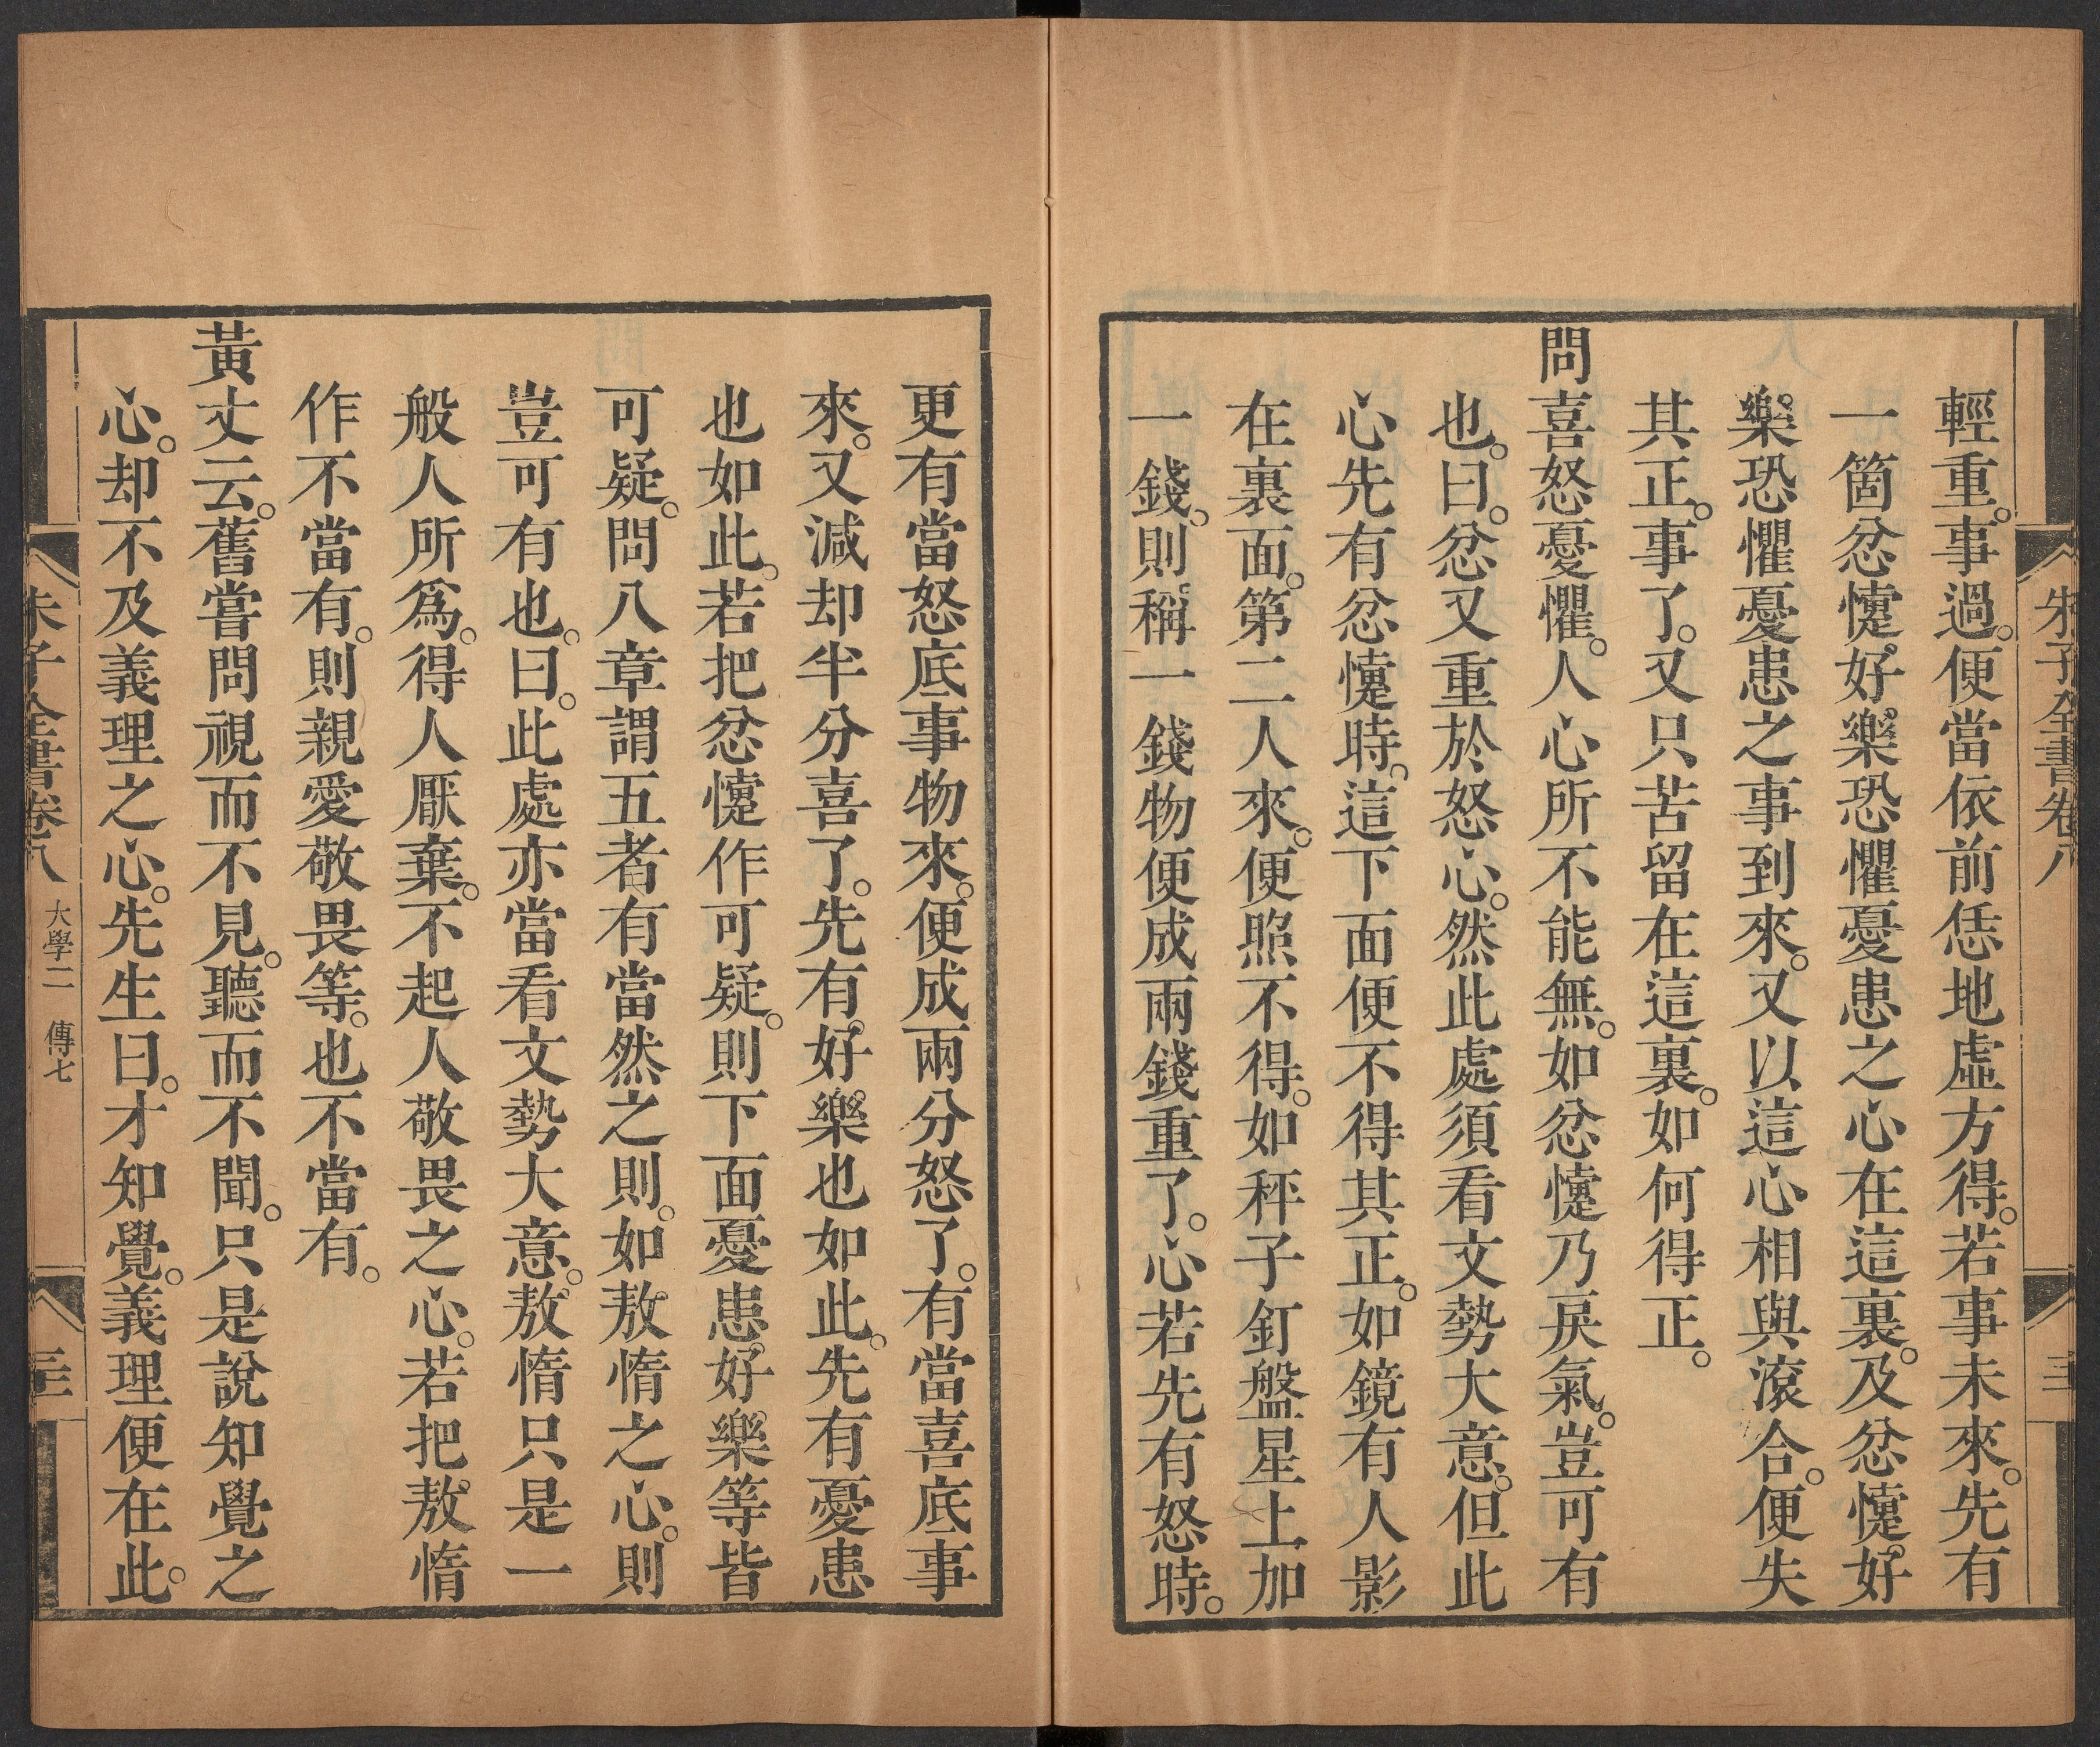 朱子全書卷八
輕重。事過。便當依前恁地虛方得。若事未來。先有
一箇忿懥。好樂恐懼憂患之心在這裏。及忿懥。好
樂恐懼憂患之事到來。又以這心相與滾合。便失
其正。事了。又只苦留在這裏。如何得正。
問喜怒憂懼。人心所不能無。如忿懥乃戾氣。豈可有
也。曰。忿又重於怒心。然此處須看文勢大意。但此
心先有忿懥時。這下面便不得其正。如鏡有人影
在裏面。第二人來。便照不得。如秤子釘盤星上加
一錢。則稱一錢物便成兩錢重了。心若先有怒時。
更有當怒底事物來。便成兩分怒了。有當喜底事
來。又減却半分喜了。先有好樂也如此。先有憂患
也如此。若把忿懥作可疑。則下面憂患。好樂等皆
可疑。問八章謂五者有當然之則。如敖惰之心。則
豈可有也。曰。此處亦當看文勢大意。敖惰只是一
般人所爲。得人厭棄。不起人敬畏之心。若把敖惰
作不當有。則親愛敬畏等。也不當有。
黃丈云。舊嘗問視而不見。聽而不聞。只是說知覺之
心。却不及義理之心。先生曰。才知覺。義理便在此。
朱子全書卷八 大學二 傳七